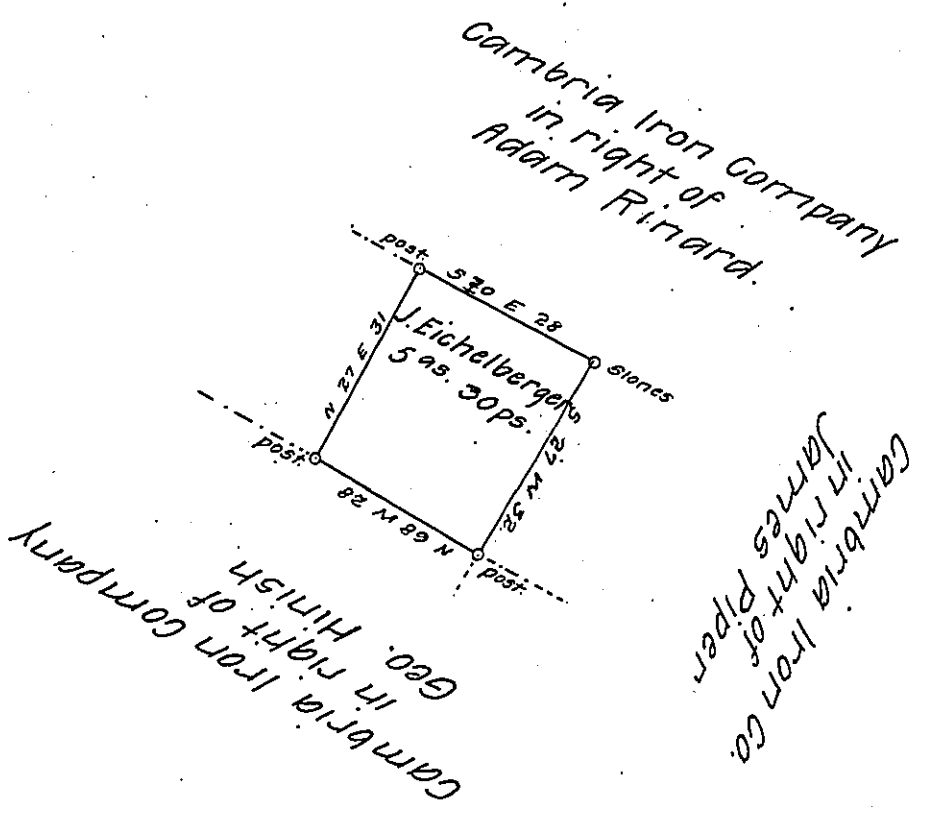 Cambria Iron Company
in right of
Adam Rinard.
post.
S 70 E 28
Stones
N 27 E 31
J. Eichelbergers
5 as. 30 ps.
S 27 W 32
post.
N 68 W 28
post.
Cambria Iron Co.
in right of
James Piper
Cambria Iron Company
in right of
Geo. Hinish